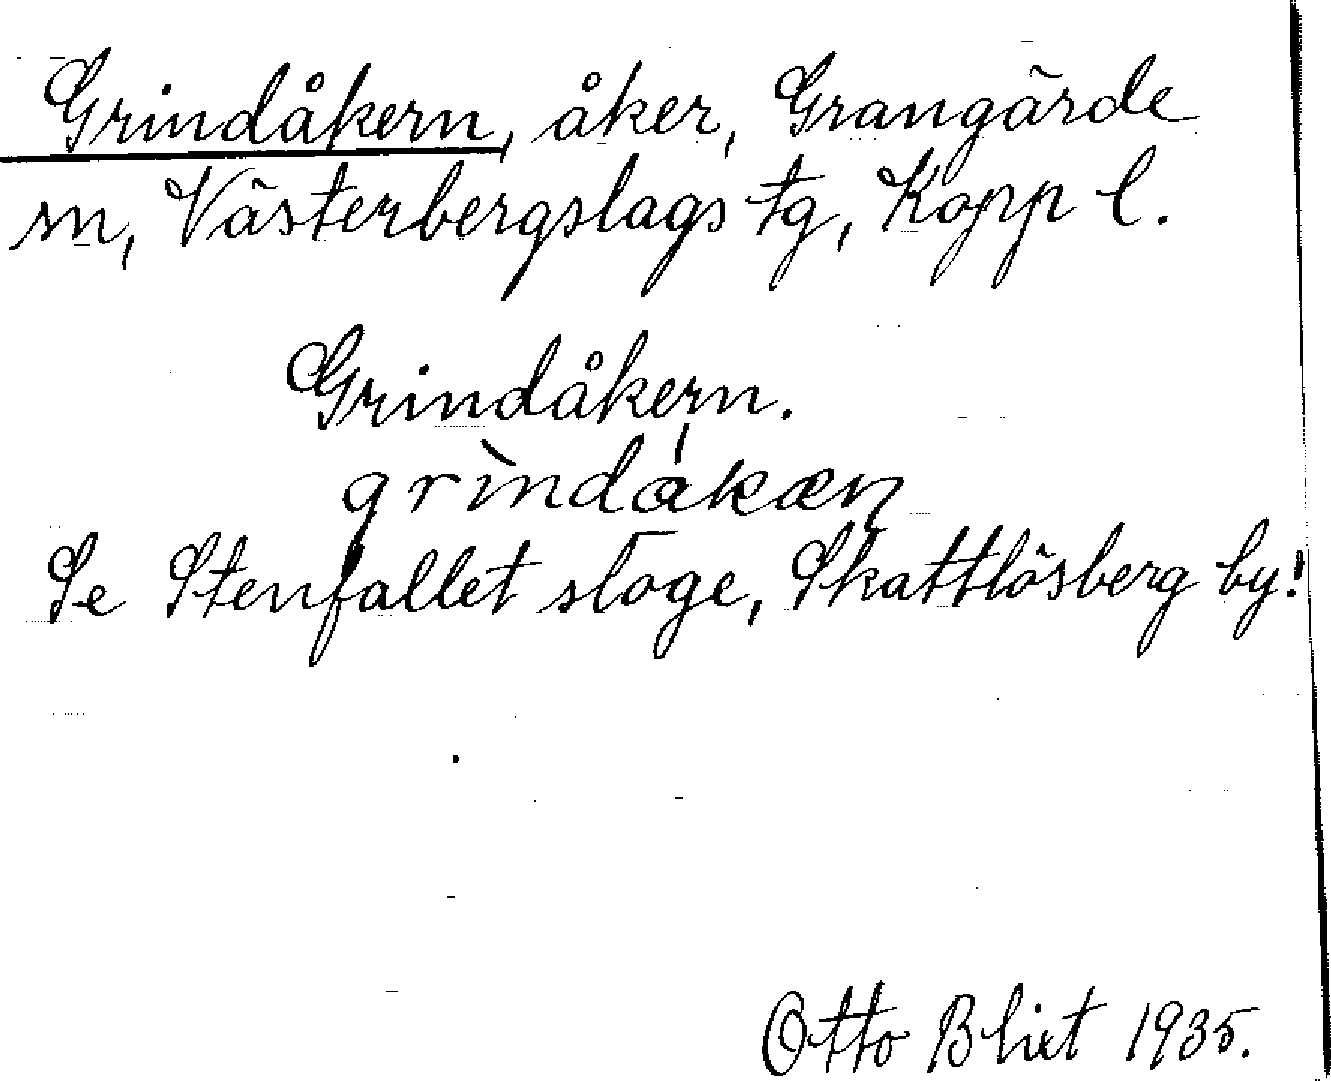 Grindåkern, åker, Grangärde
sn, Västerbergslags tg, Kopp l.
Grindåkern.
grìndåkæṇ
Se Stenfallet sloge, Skattlösberg by!
Otto Blixt 1935.